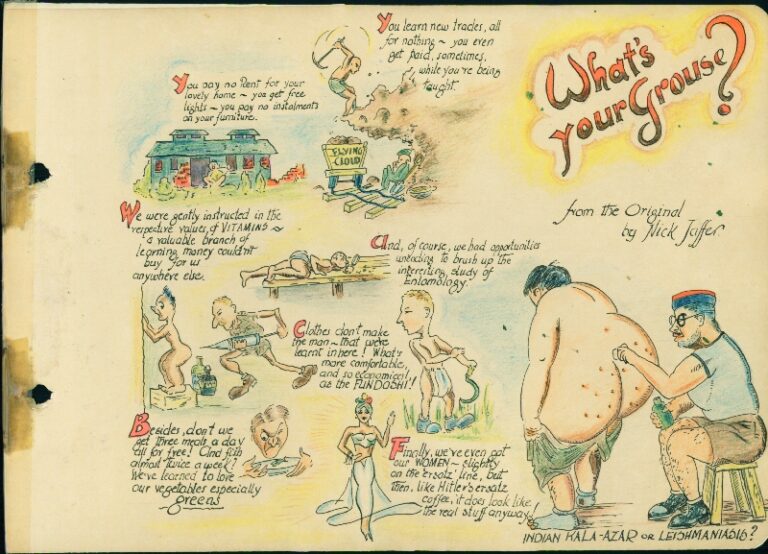 What's
your Grouse?
from the Original
by Nick Jaffer
You pay no Rent for your
lovely home ~ you get free
lights ~ you pay no instalments
on your furniture.
You learn new trades, all
for nothing ~ you even
get paid, sometimes,
while you're being
taught.
FLYING
CLOUD
We were gently instructed in the
respective values of VITAMINS ~
a valuable branch of
learning money couldn't
buy for us
anywhere else.
And, of course, we had opportunities
unending to brush up the
interesting study of
Entomology.
Clothes don't make
the man ~ that we've
learnt in here! What's
more comfortable,
and so economical!
as the FUNDOSHI'!
Besides, don't we
get three meals a day
all for free! And fish
almost twice a week?
We've learned to love
our vegetables especially
greens
Finally, we've even got
our WOMEN ~ slightly
on the 'ersatz' line, but
then, like Hitler's ersatz
coffee, it does look like
the real stuff anyway!
INDIAN KALA-AZAR OR LEISHMANIASIS?